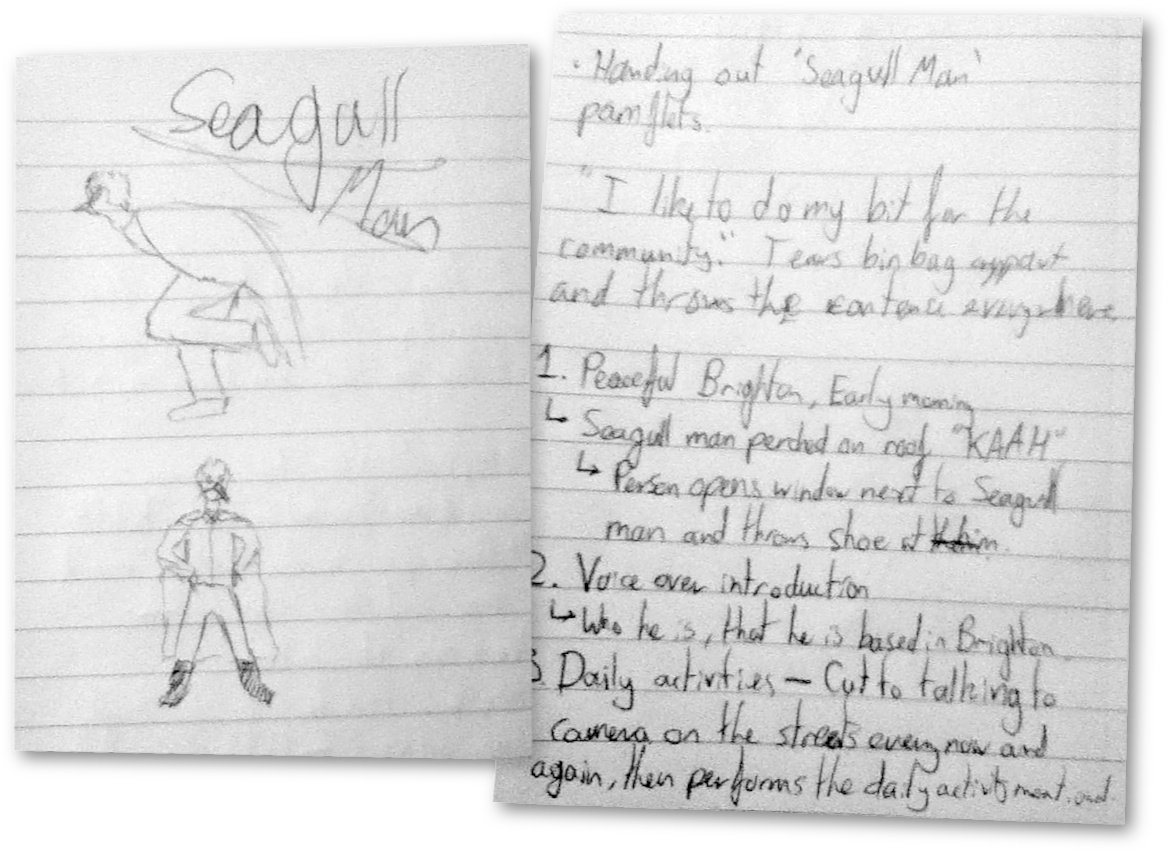 Seagull
Man
· Handing out 'Seagull Man'
pamflets.
"I like to do my bit for the
community." Tears bin bag appart
and throws the contence everywhere
1. Peaceful Brighton, Early morning
↳ Seagull man perched on roof "KAAH"
↳ Person opens window next to Seagull
man and throws shoe at him.
2. Voice over introduction
↳ Who he is, that he is based in Brighton
3. Daily activities — Cut to talking to
camera on the streets every now and
again, then performs the daily activity